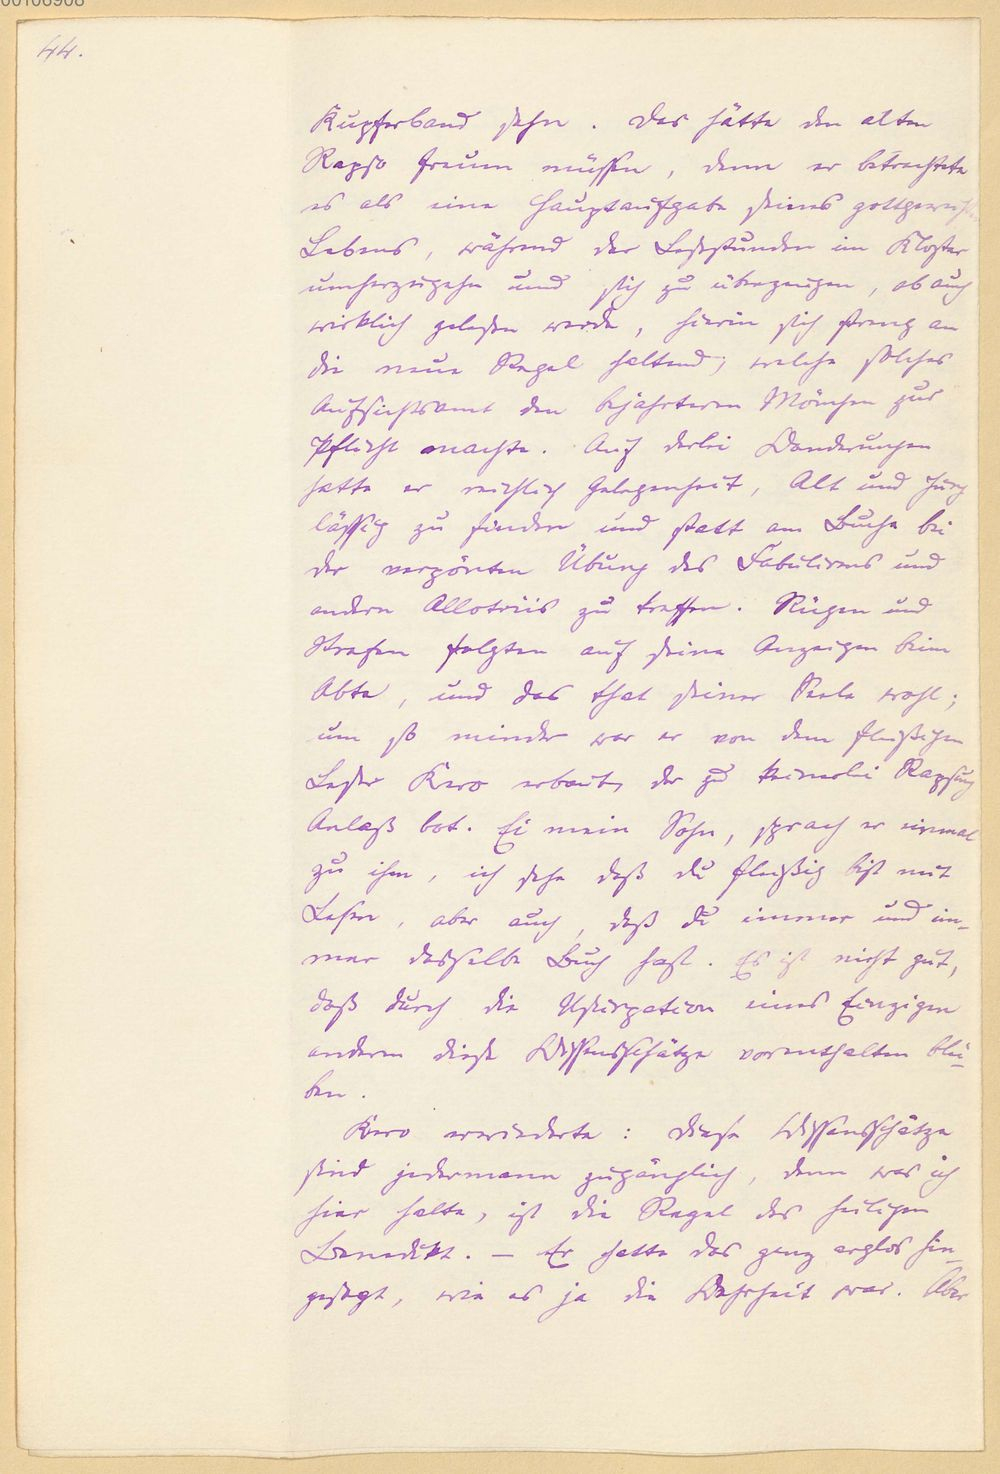 00106908
44.
Kupferband sehn. Das hätte den alten
Rapso freuen müssen, denn er betrachtete
es als eine Hauptaufgabe seines gottgeweihten
Lebens, während der Lesestunden im Kloster
umherzugehn und sich zu überzeugen, ob auch
wirklich gelesen werde, hierin sich streng an
die neue Regel haltend, welche solches
Aufsichtsamt den bejahrteren Mönchen zur
Pflicht machte. Auf derlei Wanderungen
hatte er reichlich Gelegenheit, Alt und Jung
lässig zu finden und statt am Buche bei
der verpönten Übung des Fabulirens und
andern Allotriis zu treffen. Rügen und
Strafen folgten auf seine Anzeigen beim
Abte, und das that seiner Seele wohl;
um so minder war er von dem fleißigen
Leser Kero erbaut, der zu keinerlei Rapsung
Anlaß bot. Ei mein Sohn, sprach er einmal
zu ihm, ich sehe daß du fleißig bist mit
Lesen, aber auch, daß du immer und im-
mer dasselbe Buch hast. Es ist nicht gut,
daß durch die Usurpation eines Einzigen
anderen diese Wissensschätze vorenthalten blei-
ben.
Kero erwiederte: Diese Wissensschätze
sind jedermann zugänglich, denn was ich
hier halte, ist die Regel des heiligen
Benedikt. — Er hatte das ganz arglos hin-
gesagt, wie es ja die Wahrheit war. Aber